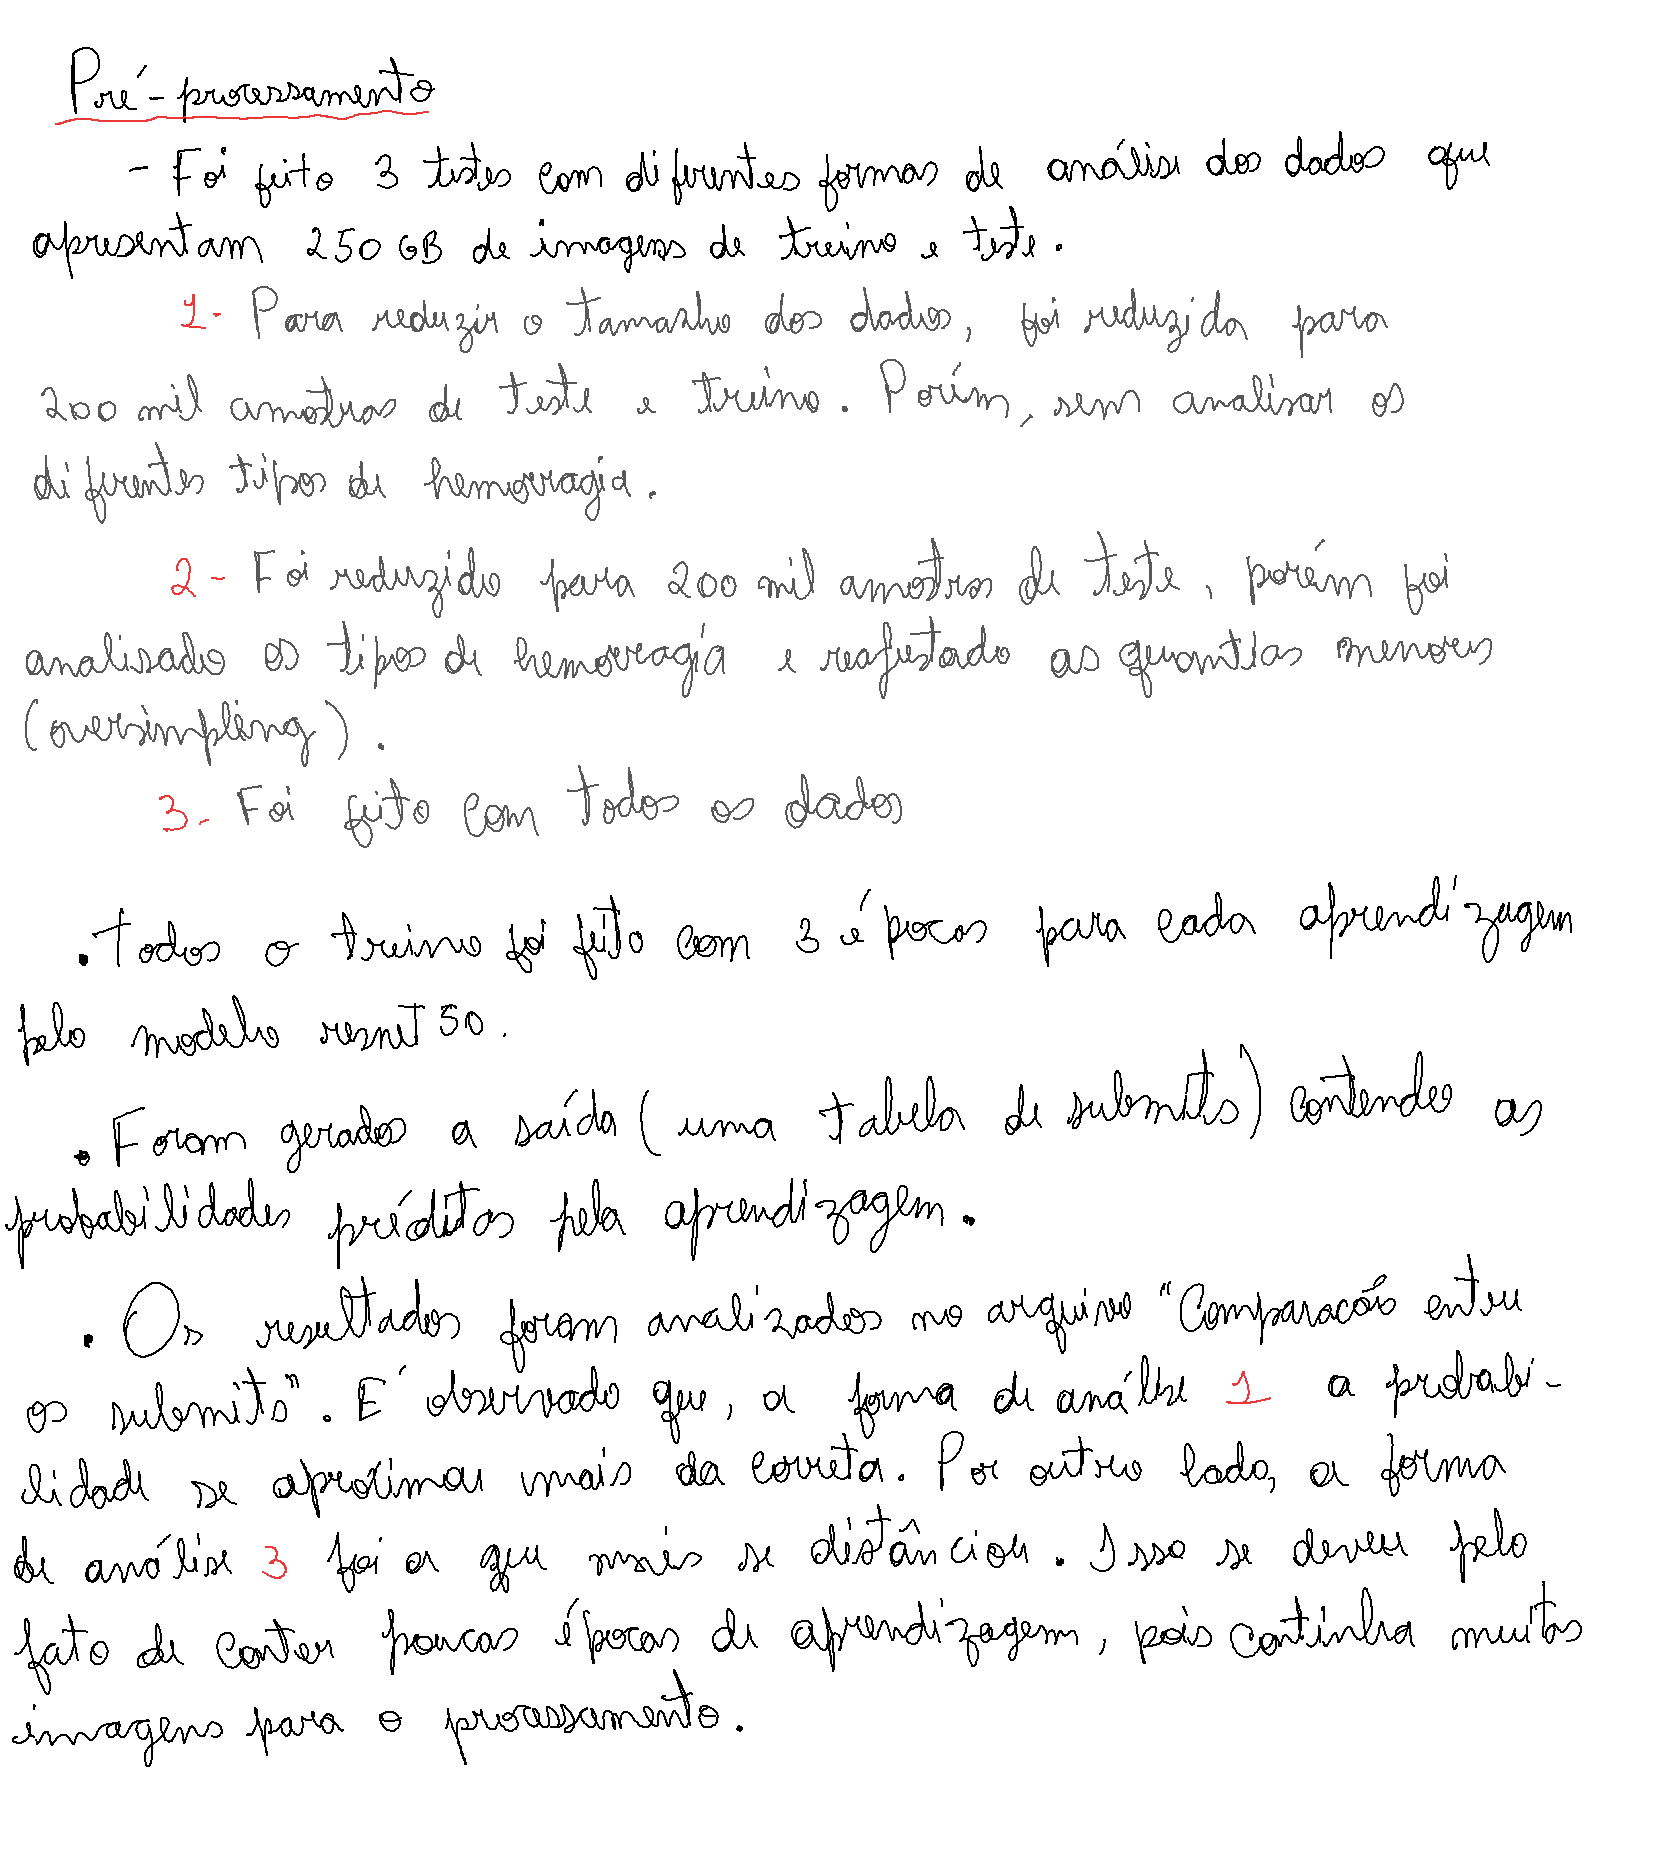 Pré-processamento
- Foi feito 3 testes com diferentes formas de análise dos dados que
apresentam 250 GB de imagens de treino e teste.
1- Para reduzir o tamanho dos dados, foi reduzida para
200 mil amostras de teste e treino. Porém, sem analisar os
diferentes tipos de hemorragia.
2- Foi reduzido para 200 mil amostras de teste, porém foi
analisado os tipos de hemorragia e reajustado as quantias menores
(oversimpling).
3- Foi feito com todos os dados
. Todos o treino foi feito com 3 épocas para cada aprendizagem
pelo modelo resnet 50.
. Foram gerados a saída (uma tabela de submits) contendo as
probabilidades préditas pela aprendizagem.
. Os resultados foram analizados no arquivo "Comparacão entre
os submits". É observado que, a forma de análise 1 a probabi-
lidade se aproximou mais da correta. Por outro lado, a forma
de análise 3 foi a que mais se distânciou. Isso se deveu pelo
fato de conter poucas épocas de aprendizagem, pois continha muitas
imagens para o processamento.